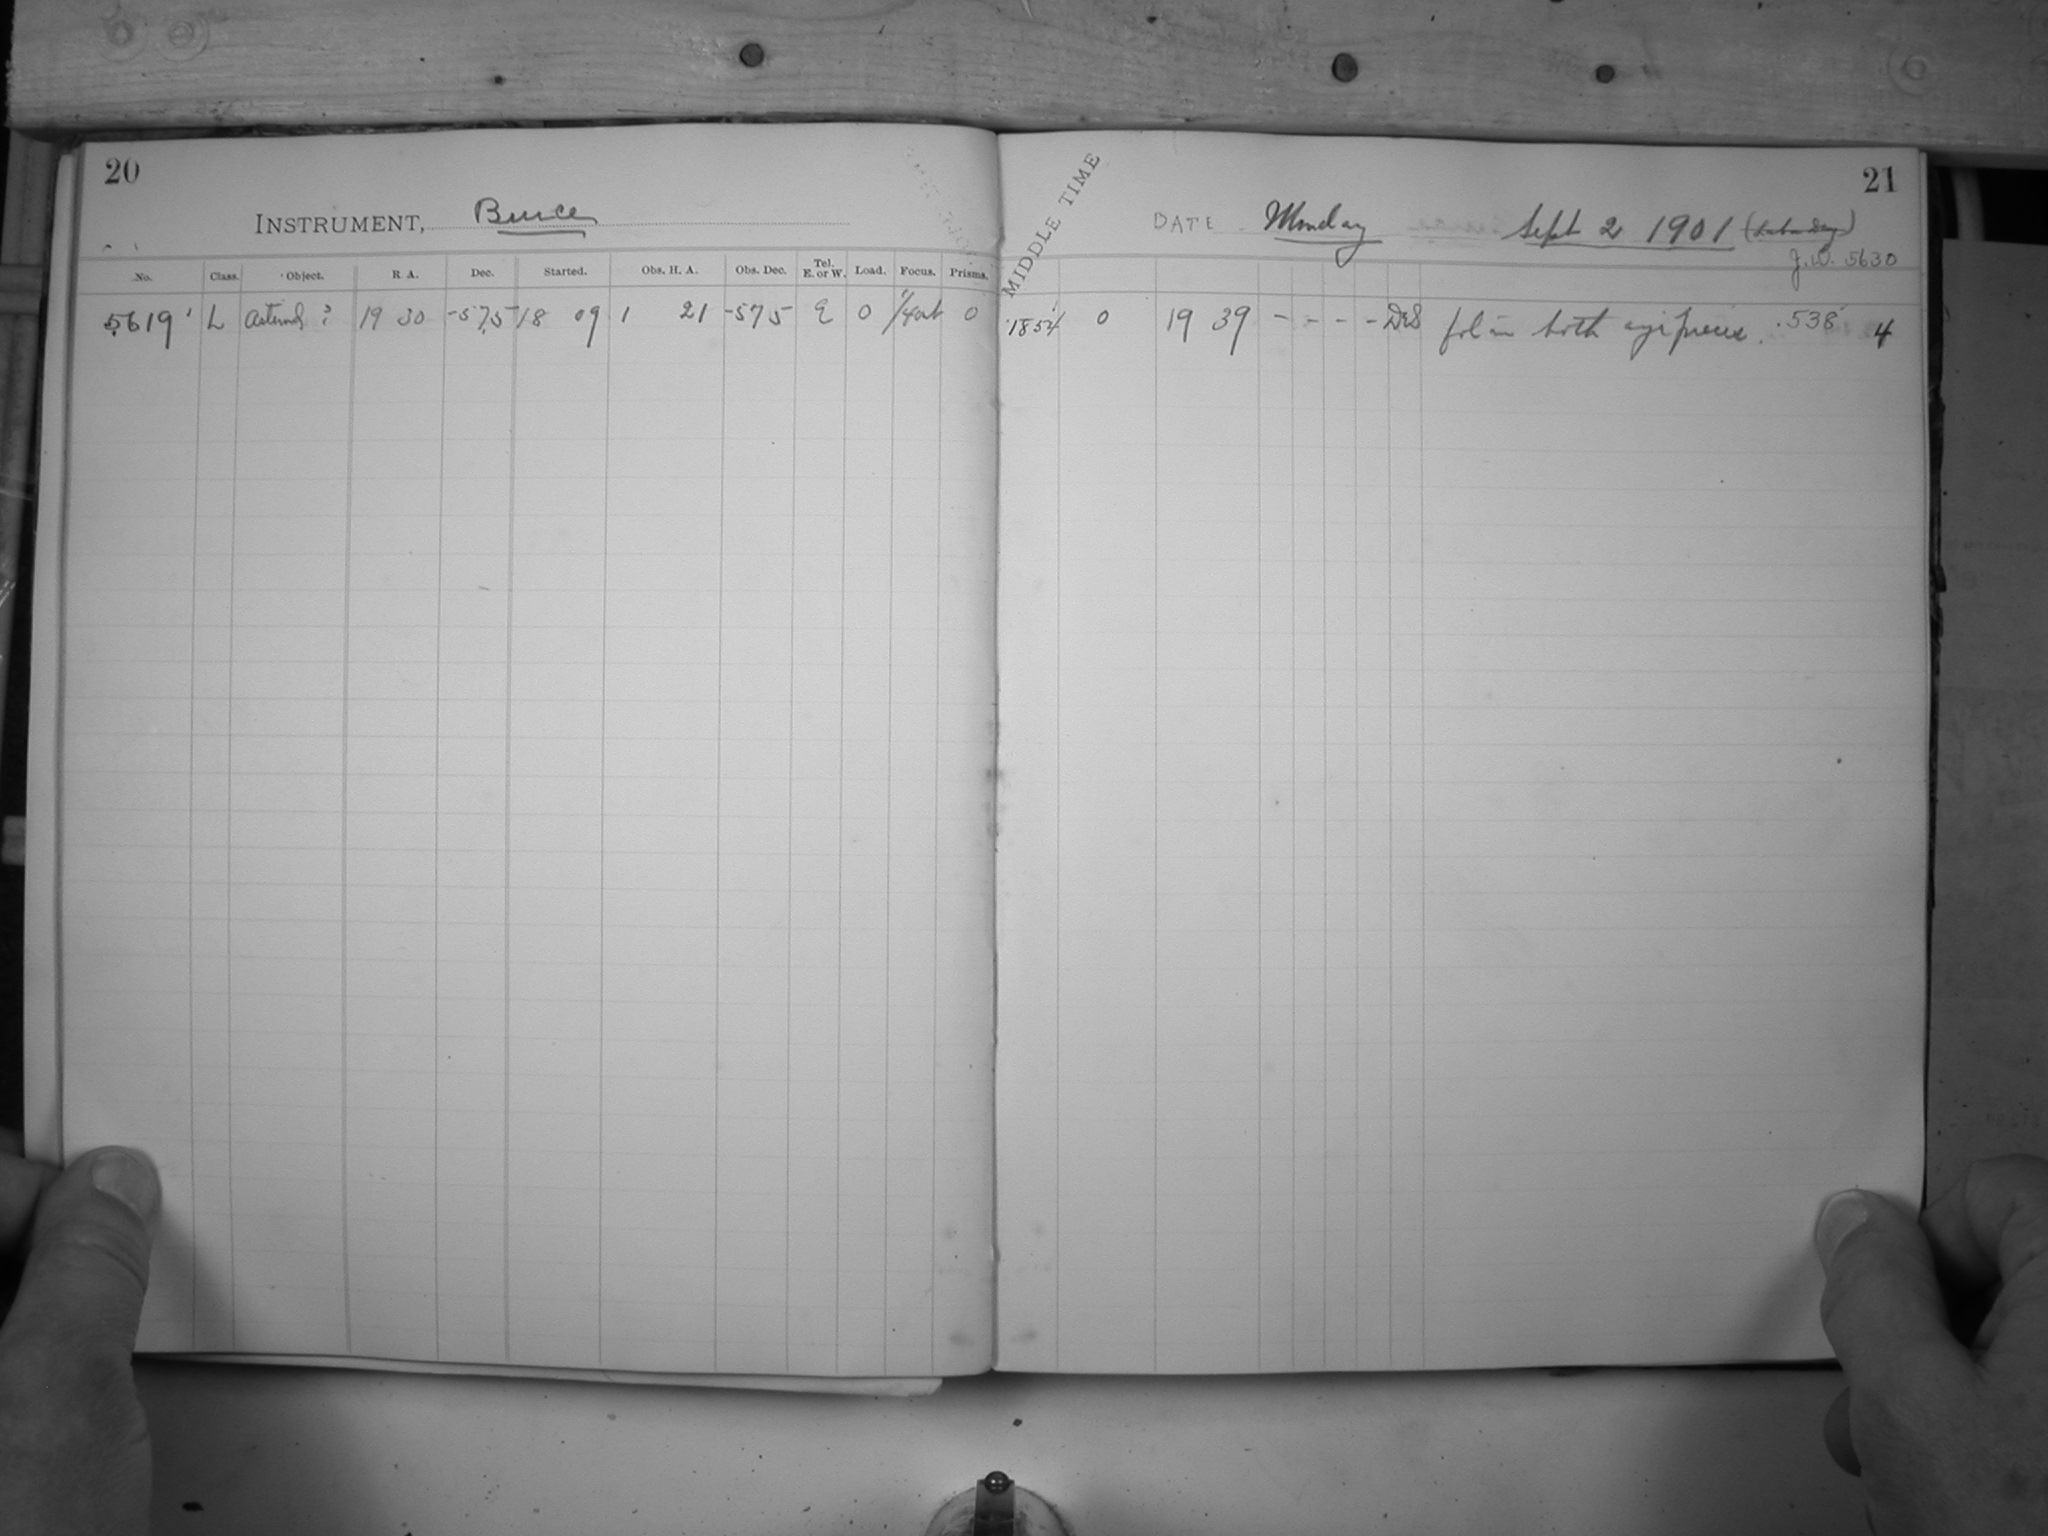 20
INSTRUMENT, Bruce
No. Class. Object. R. A. Dec. Started. Obs. H. A. Obs. Dec. Tel. E. or W. Load. Focus. Prisms.
5619 L 19 30 -57.5 18 09 1 21 -57 5 E 0 0
21
MIDDLE TIME
DATE Monday Sept 2 1901
J.D. 5630
18 54 0 19 39 - - - - fol in both eyepieces .538 4